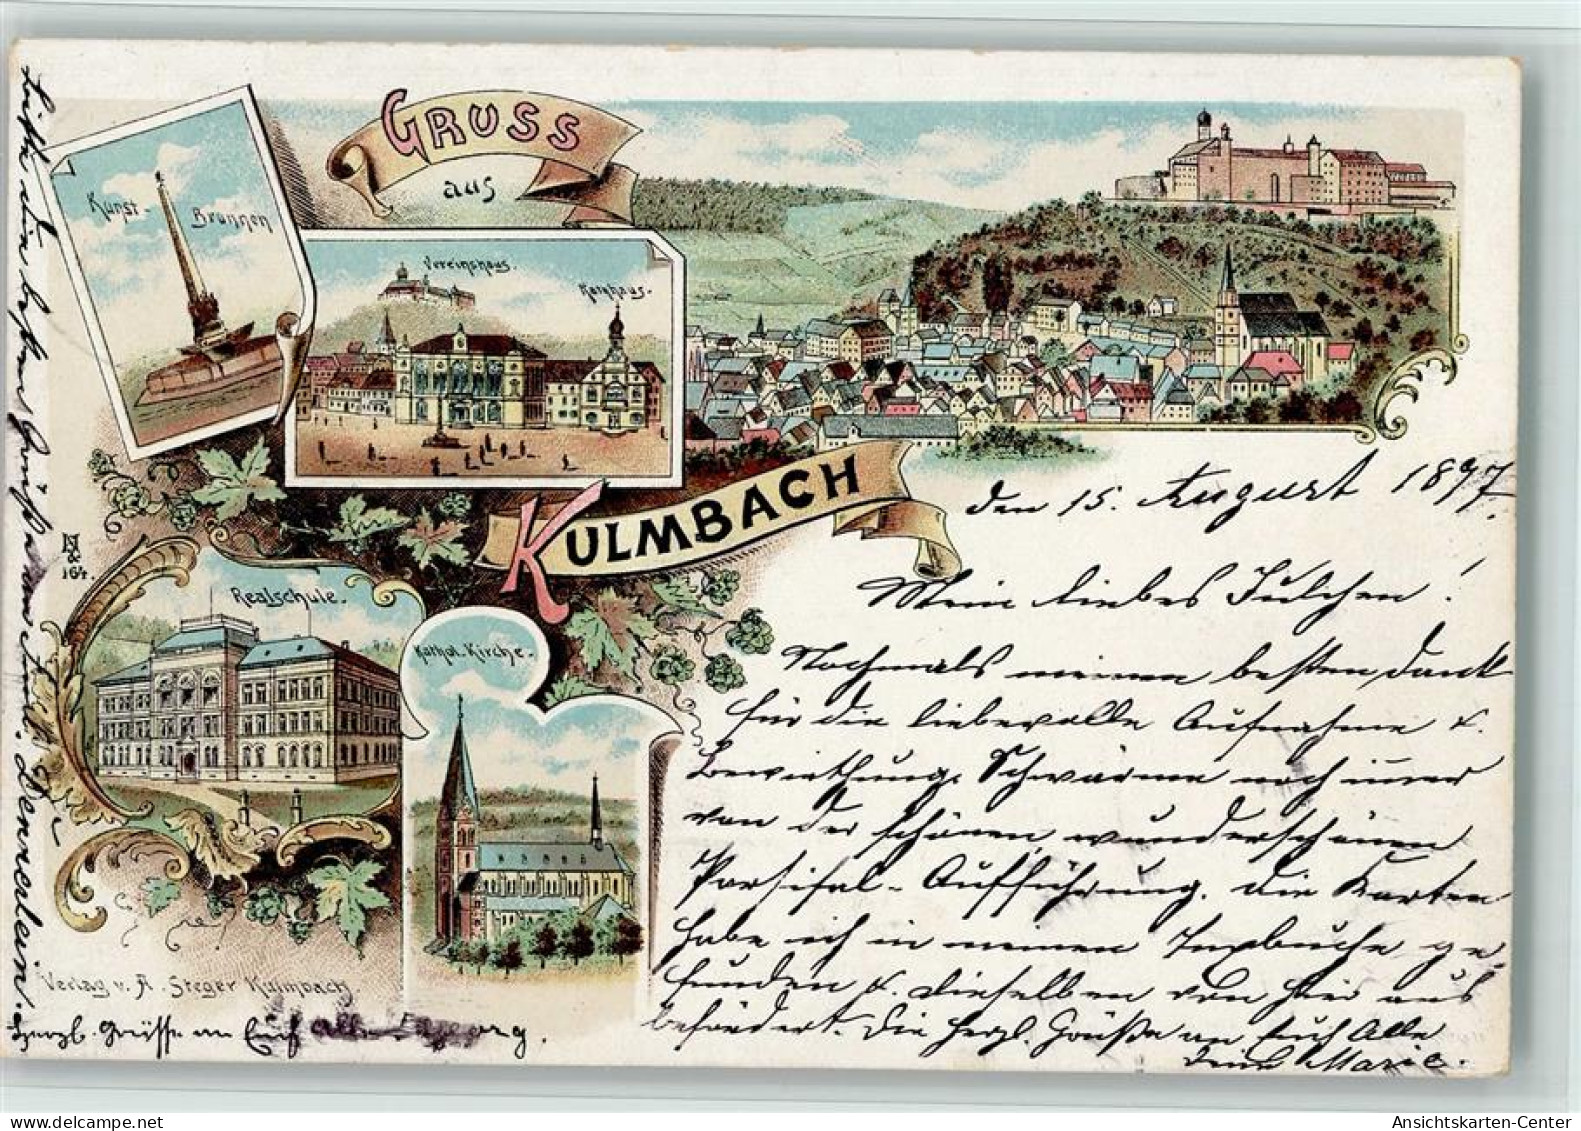 GRUSS
aus
Kunst-Brunnen
Vereinshaus.
Rathaus.
KULMBACH
N
164.
Realschule.
Kathol. Kirche.
Verlag v. A. Steger Kulmbach.
den 15. August 1897.
Mein liebes Julchen!
Nochmals meinen besten Dank
für die liebevolle Aufnahme u.
Bewirthung. Schwärme noch immer
von der schönen, wunderschönen
Parsifal-Aufführung. Die Karten
habe ich in meinen
funden u. dieselben von hier aus
befördert. Die herzl. Grüße an Euch Alle
Deine Marie.
herzl. Grüsse an Euch
Ansichtskarten-Center